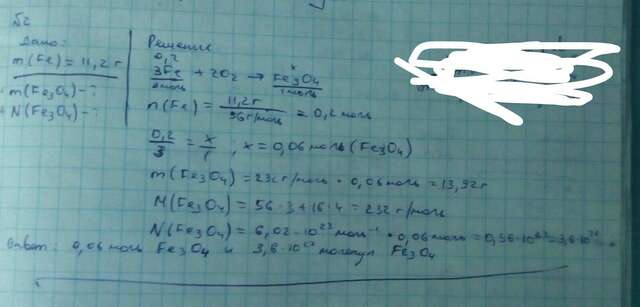 №2
Дано:
m(Fe) = 11,2 г
m(Fe3O4) - ?
N(Fe3O4) - ?
Решение
0,2 x
3Fe + 2O2 → Fe3O4
3моль 1моль
n(Fe) = 11,2 г / 56 г/моль = 0,2 моль
0,2/3 = x/1 ; x = 0,06 моль (Fe3O4)
m(Fe3O4) = 232 г/моль · 0,06 моль = 13,92 г
M(Fe3O4) = 56 · 3 + 16 · 4 = 232 г/моль
N(Fe3O4) = 6,02 · 10^23 моль^-1 · 0,06 моль = 0,36 · 10^23 = 3,6 · 10^22
Ответ: 0,06 моль Fe3O4 и 3,6 · 10^22 молекул Fe3O4